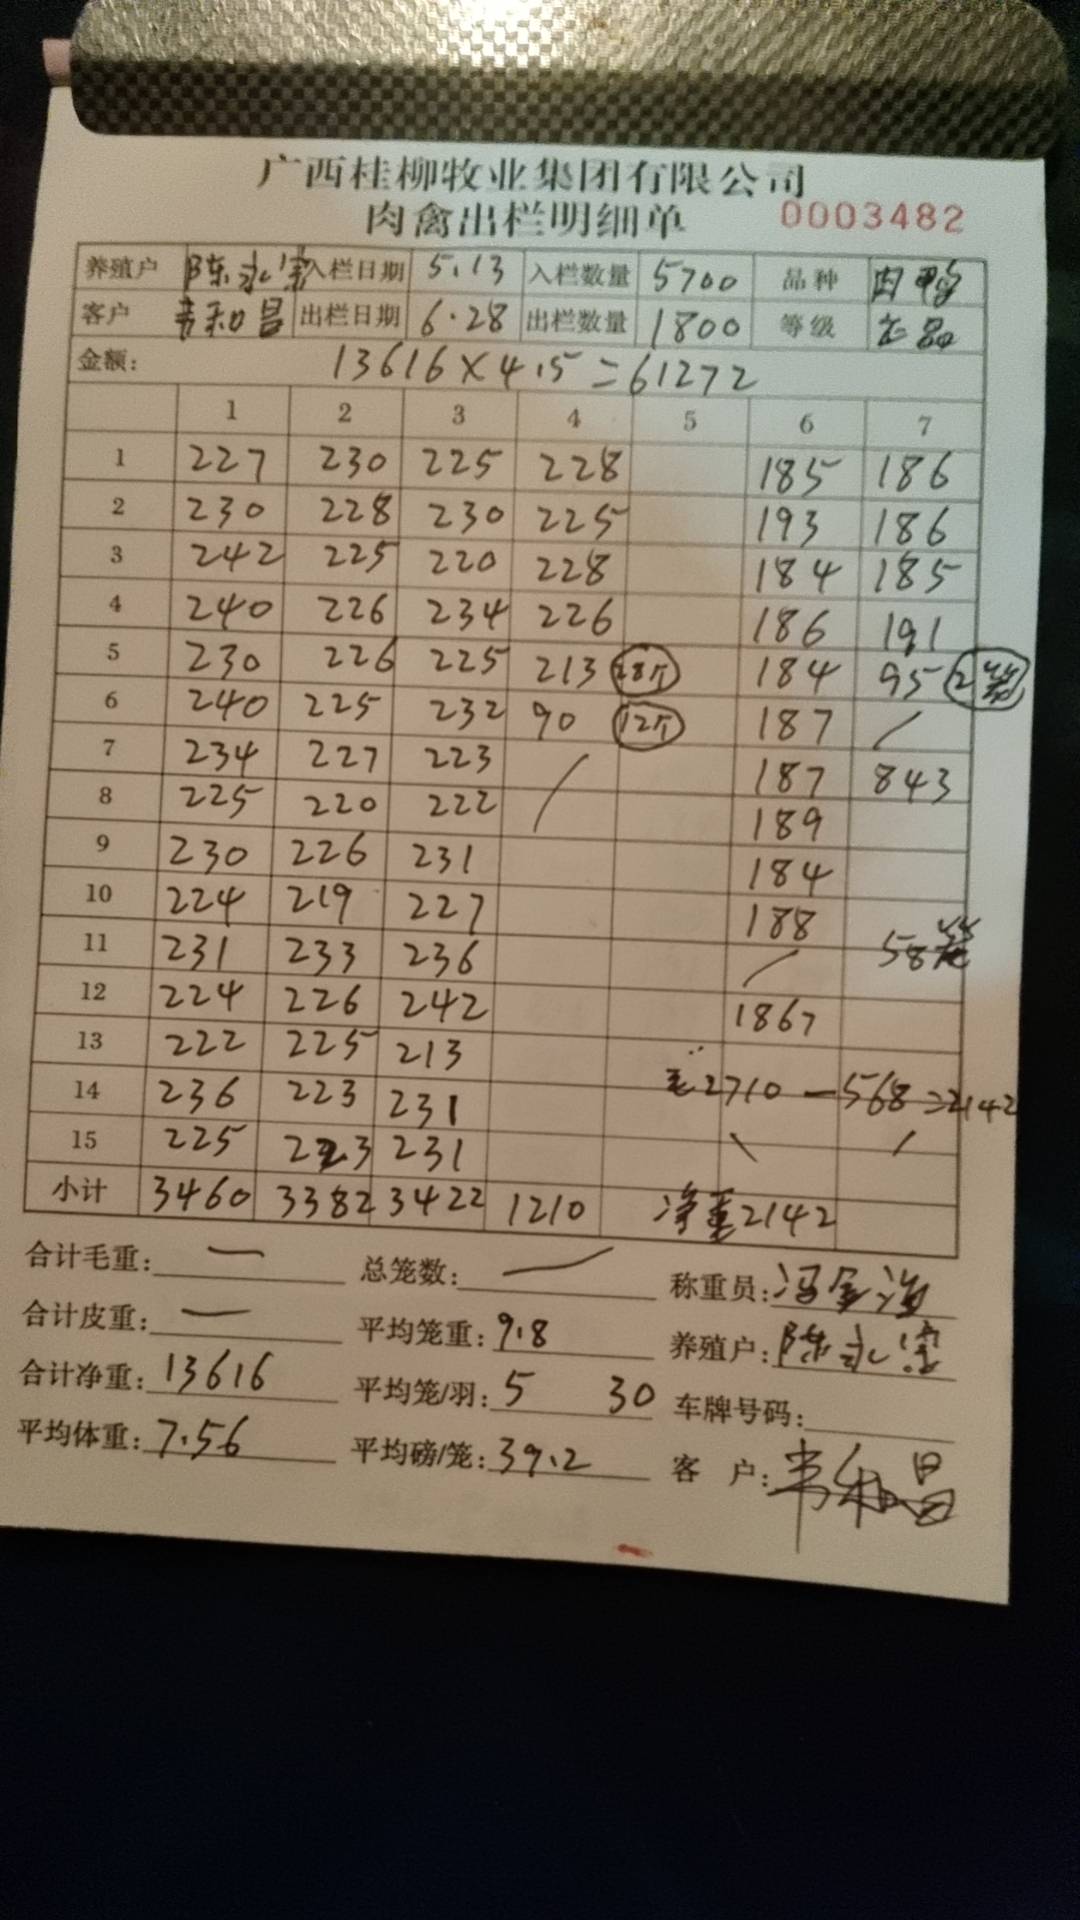 广西桂柳牧业集团有限公司
肉禽出栏明细单 0003482
养殖户 陈永 入栏日期 5.13 入栏数量 5700 品种 肉鸭
客户 韦和昌 出栏日期 6.28 出栏数量 1800 等级 正品
金额: 13616×4.5=61272
1 2 3 4 5 6 7
1 227 230 225 228 185 186
2 230 228 230 225 193 186
3 242 225 220 228 184 185
4 240 226 234 226 186 191
5 230 226 225 213 28只 184 95 2笼
6 240 225 232 90 12只 187 /
7 234 227 223 / 187 843
8 225 220 222 189
9 230 226 231 184
10 224 219 227 188
11 231 233 236 / 58笼
12 224 226 242 1867
13 222 225 213
14 236 223 231 毛:2710-568=2142
15 225 223 231
小计 3460 3382 3422 1210 净重2142
合计毛重: — 总笼数: / 称重员:
合计皮重: — 平均笼重: 9.8 养殖户: 陈永
合计净重: 13616 平均笼/羽: 5 30 车牌号码:
平均体重: 7.56 平均磅/笼: 39.2 客户: 韦和昌